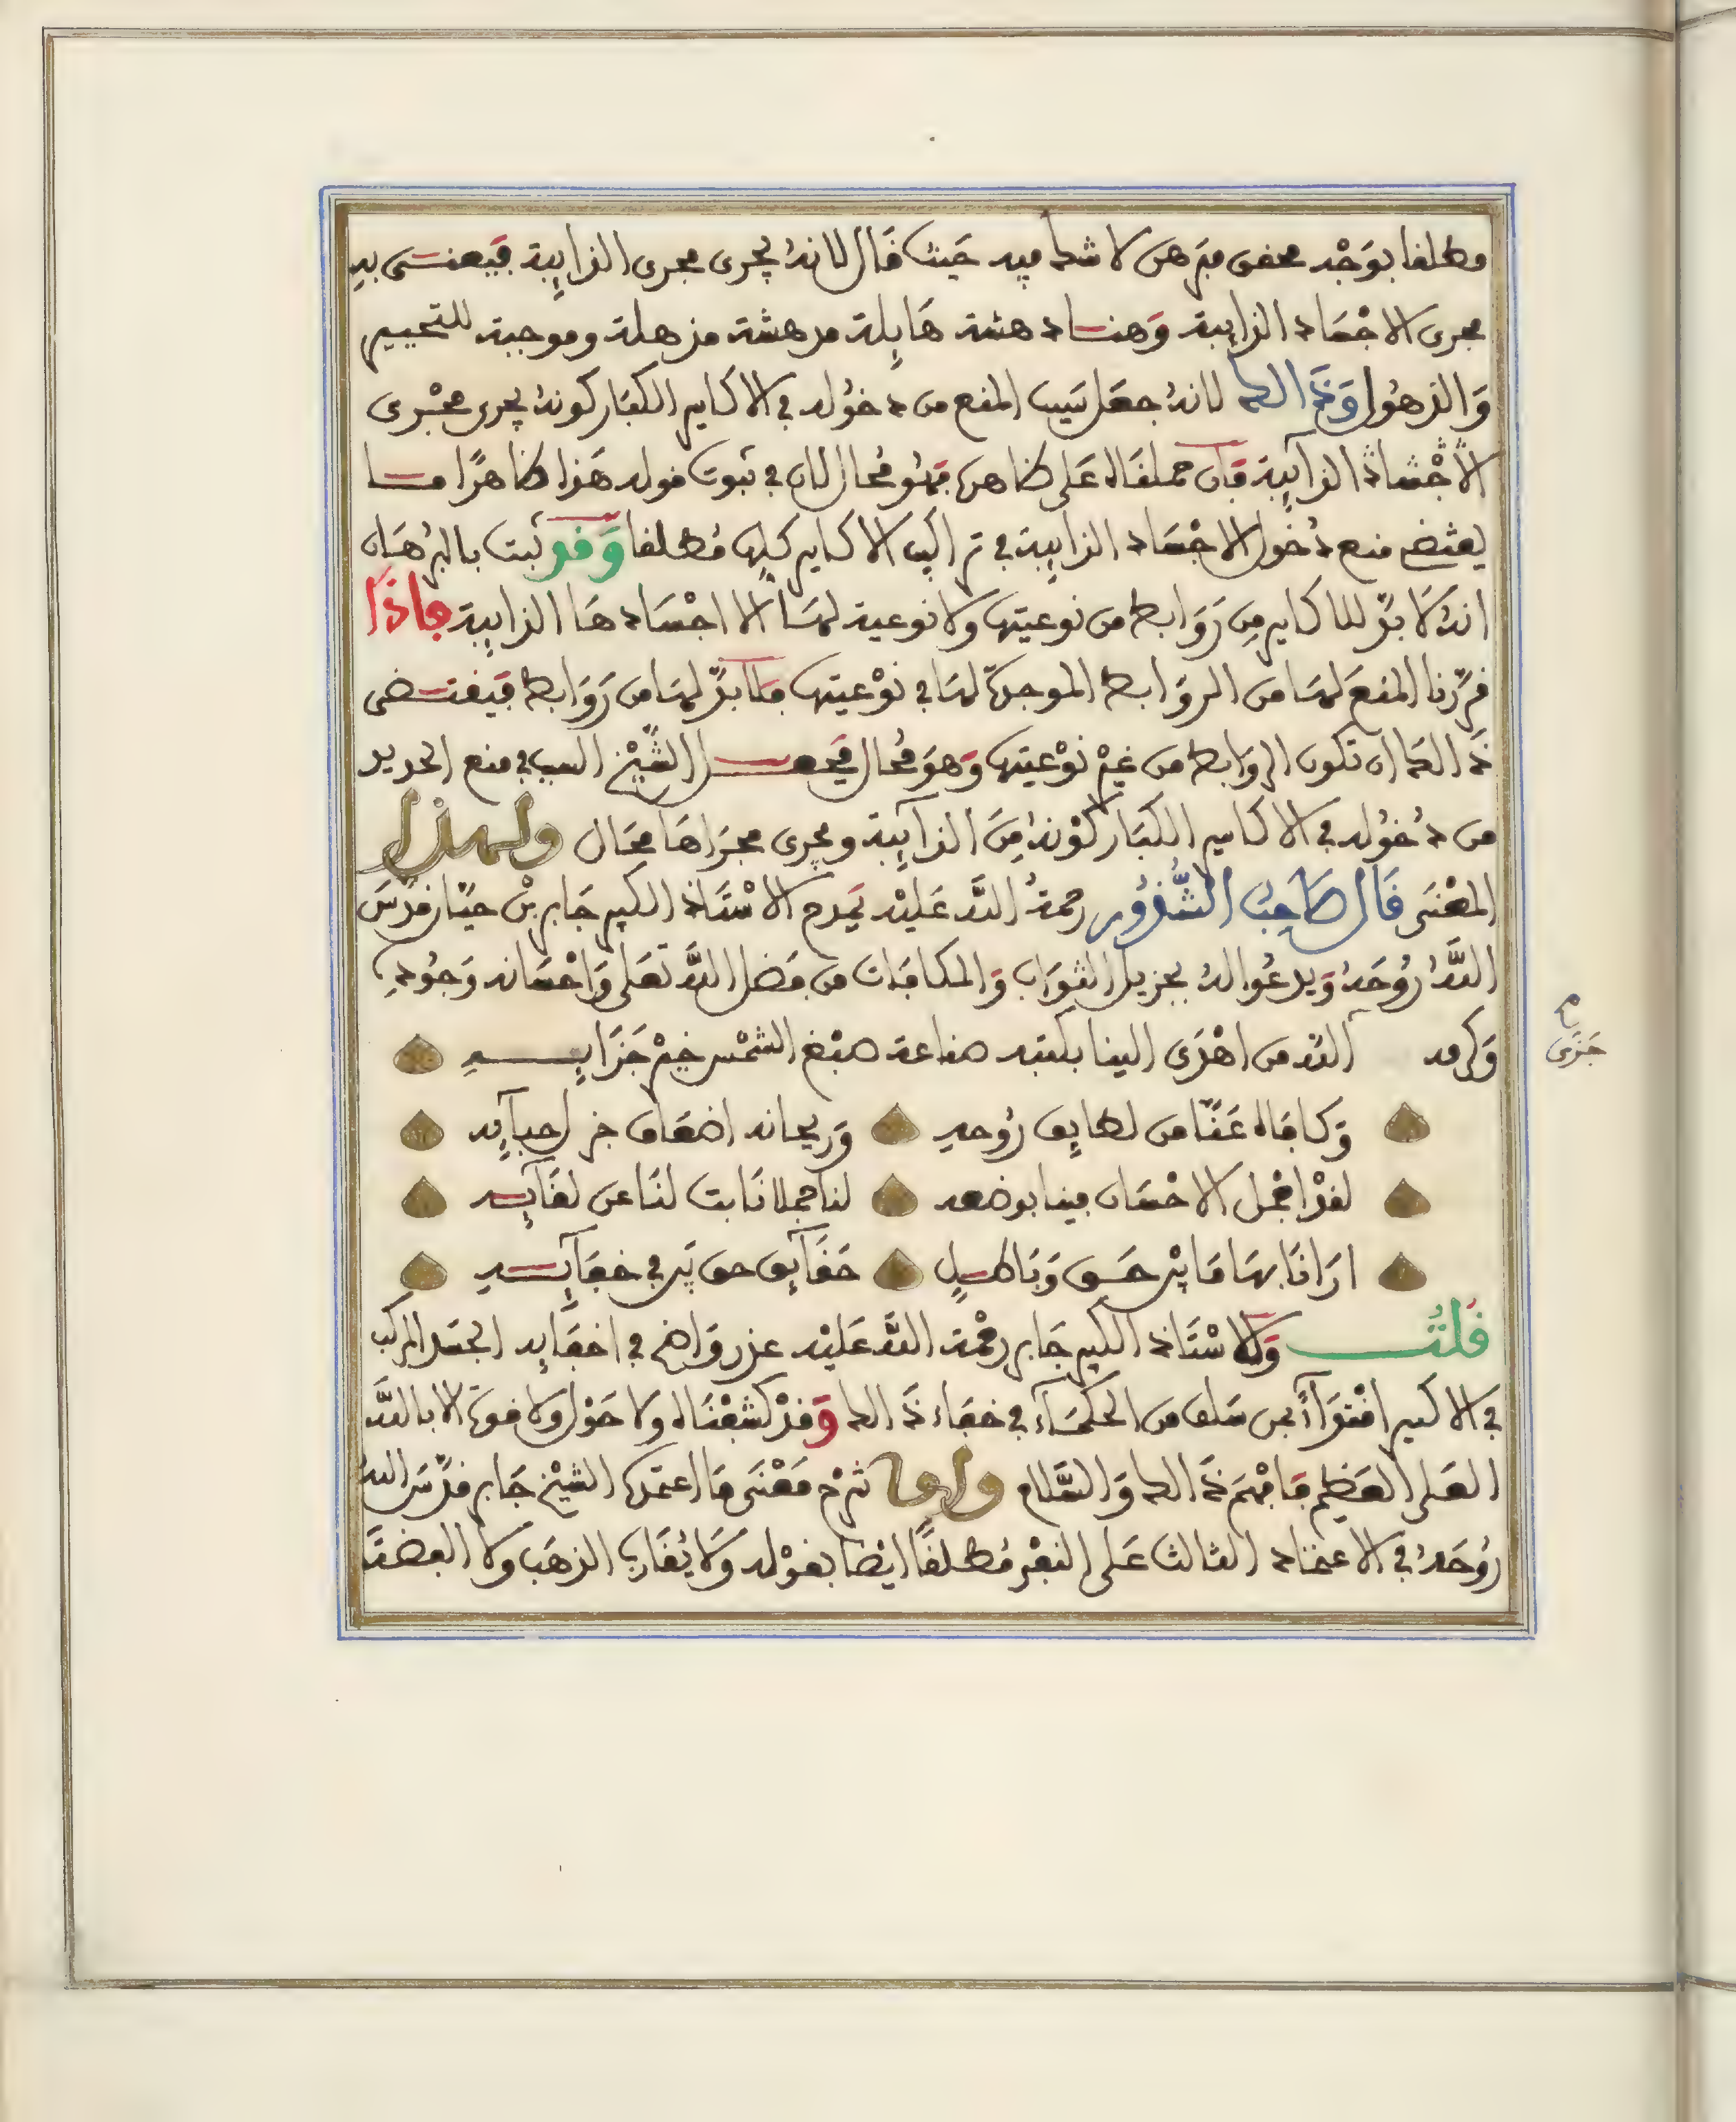 مطلقا بوجه محقق مبرهن لا شك فيه حيث قال لانه يجرى مجرى الذايبة فيعنى به
مجرى الاجساد الذايبة وهنا دهشة هايلة مدهشة مذهلة وموجبة للتحيير
والذهول وذالك لانه جعل سبب المنع من دخوله في الاكاسير الكبار كونه يجرى مجرى
الاجساد الذايبة فان حملناه على ظاهره فهو محال لان في ثبوت قوله هذا ظاهرا ما
يقتضي منع دخول الاجساد الذايبة في تراكيب الاكاسير كلها مطلقا وقد ثبت بالبرهان
انه لا بد للاكاسير من روابط من نوعيتها ولا نوعية لها الا اجسادها الذايبة فاذا
قررنا المنع لها من الروابط الموجدة لها في نوعيتها فلا بد لها من روابط فيقتضى
ذالك ان تكون الروابط من غير نوعيتها وهو محال فجعل الشيخ السبب في منع الحديد
من دخوله في الاكاسير الكبار كونه من الذآيبة ويجرى مجراها محال ولهذا
المعنى قال صاحب الشذور رحمة الله عليه يمدح الاستاذ الكبير جابر بن حيان قدس
الله روحه ويدعوا له بجزيل الثواب والمكافات من فضل الله تعلى واحسانه وجوده
وكرمه الله من اهدى الينا بكتبه صناعة صبغ الشمس خير جزايه
جزى
وكافاه عنا من لطايف روحه وريحانه اضعاف خر احبايه
لقد اجمل الاحسان فينا بوضعه لنا جملا نابت لنا عن لقايه
ارانا بها ما بين حق وباطل حقايق حق بر في خفايه
قلت وللاستاذ الكبير جابر رحمة الله عليه عذر واضح في اخفايه الجسد المركب
في الاكسير اقتدآء بمن سلف من الحكمآء في خفاء ذالك وقد كشفناه ولا حول ولا قوة الا بالله
العلى العظيم فافهم ذالك والسلام واما شرح معنى ما اعتمده الشيخ جابر قدس الله
روحه في الاعتماد الثالث على النفى مطلقا ايضا بقوله ولا يقارب الذهب ولا الفضة